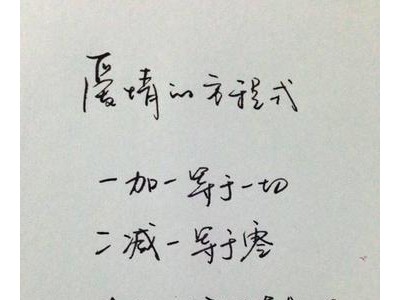 爱情的方程式
一加一等于一切
二减一等于零